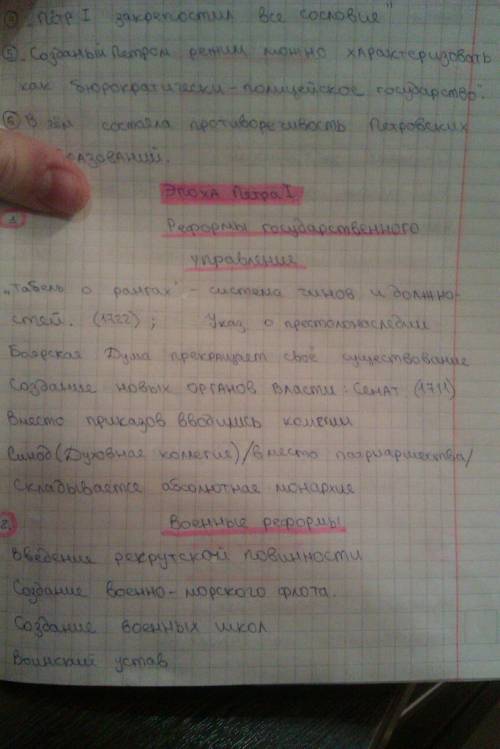 ④. „Пётр I закрепостил все сословие"
⑤. Созданый Петром режим можно характеризовать
как бюрократически-полицейское государство".
⑥ В чём состояла противоречивость Петровских
Эпоха Петра I
1. Реформы государственного
управление
„Табель о рангах" - система чинов и должно-
стей. (1722) ; Указ о престолонаследии
Боярская Дума прекращает своё существование
Создание новых органов власти: Сенат (1711)
Вместо приказов вводились колегии
Синод (Духовная колегия) /вместо патриаршества/
Складывается абсолютная монархия
2. Военные реформы
Введение рекрутской повинности
Создание военно-морского флота.
Создание военных школ
Воинский устав